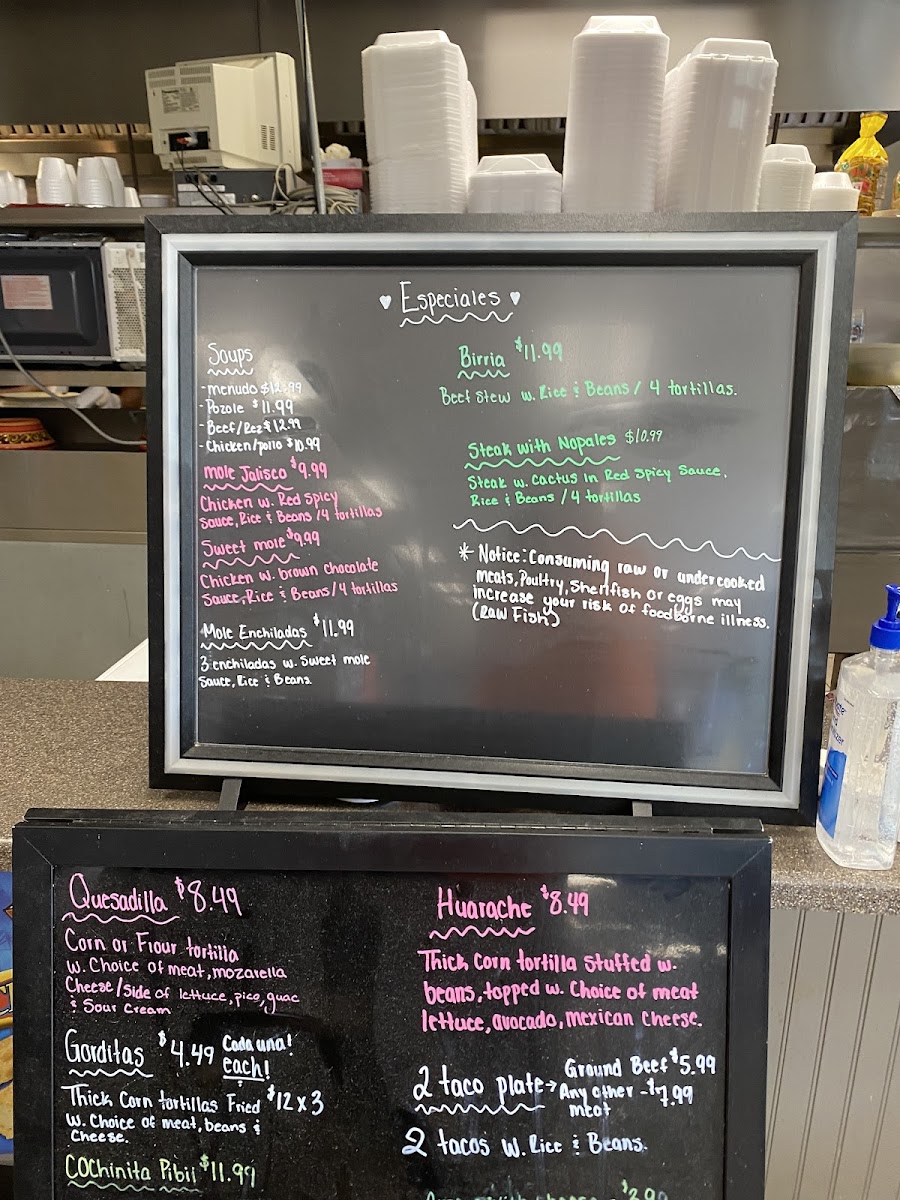 Especiales
Soups
- menudo $12.99
- Pozole $11.99
- Beef/Rez $12.99
- Chicken/pollo $10.99
mole Jalisco $9.99
Chicken w. Red Spicy
Sauce, Rice & Beans /4 tortillas
Sweet mole $9.99
Chicken w. brown chocolate
Sauce, Rice & Beans/4 tortillas
Mole Enchiladas $11.99
3 enchiladas w. Sweet mole
Sauce, Rice & Beans.
Birria $11.99
Beef Stew w. Rice & Beans / 4 tortillas.
Steak with Nopales $10.99
Steak w. Cactus in Red Spicy Sauce.
Rice & Beans /4 tortillas
* Notice: Consuming raw or undercooked
meats, Poultry, Shellfish or eggs may
increase your risk of foodborne illness.
(Raw Fish)
Quesadilla $8.49
Corn or Flour tortilla
w. Choice of meat, mozarella
Cheese/Side of lettuce, pico, guac
& Sour Cream
Gorditas $4.49 Cada una!
each!
Thick Corn tortillas Fried $12 x 3
w. Choice of meat, beans &
Cheese.
Cochinita Pibil $11.99
Huarache $8.49
Thick Corn tortilla Stuffed w.
beans, topped w. Choice of meat
lettuce, avocado, mexican Cheese.
2 taco plate→ Ground Beef $5.99
Any other - $7.99
meat
2 tacos w. Rice & Beans.